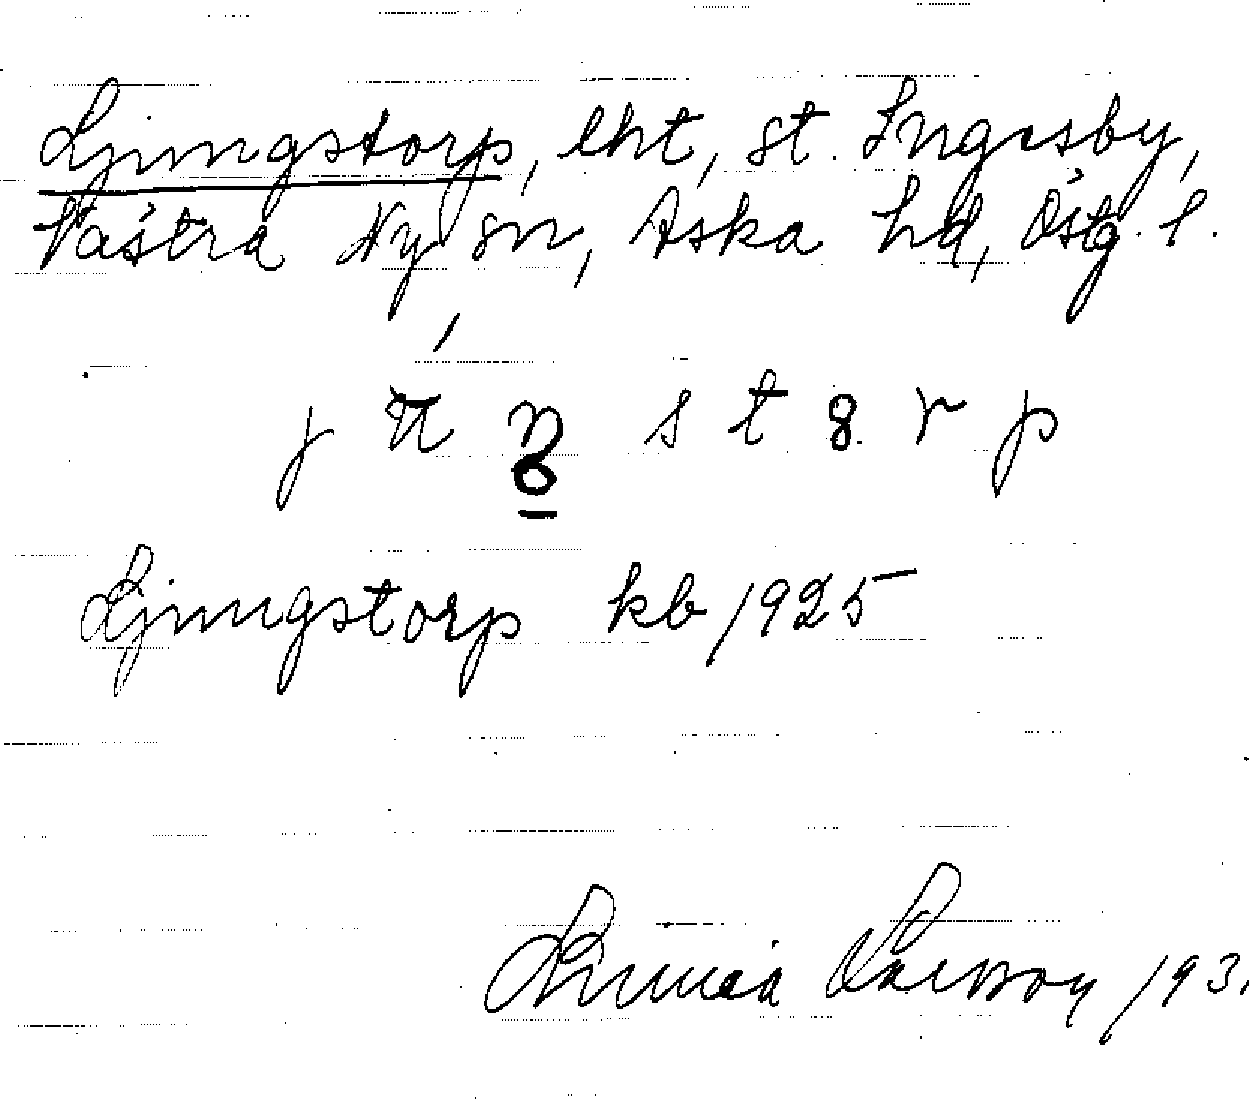 Ljungstorp, lht, st. Ingesby,
Västra Ny sn, Aska hd, Östg. l.
Ljungstorp kb 1925
Linnéa Larsson 193